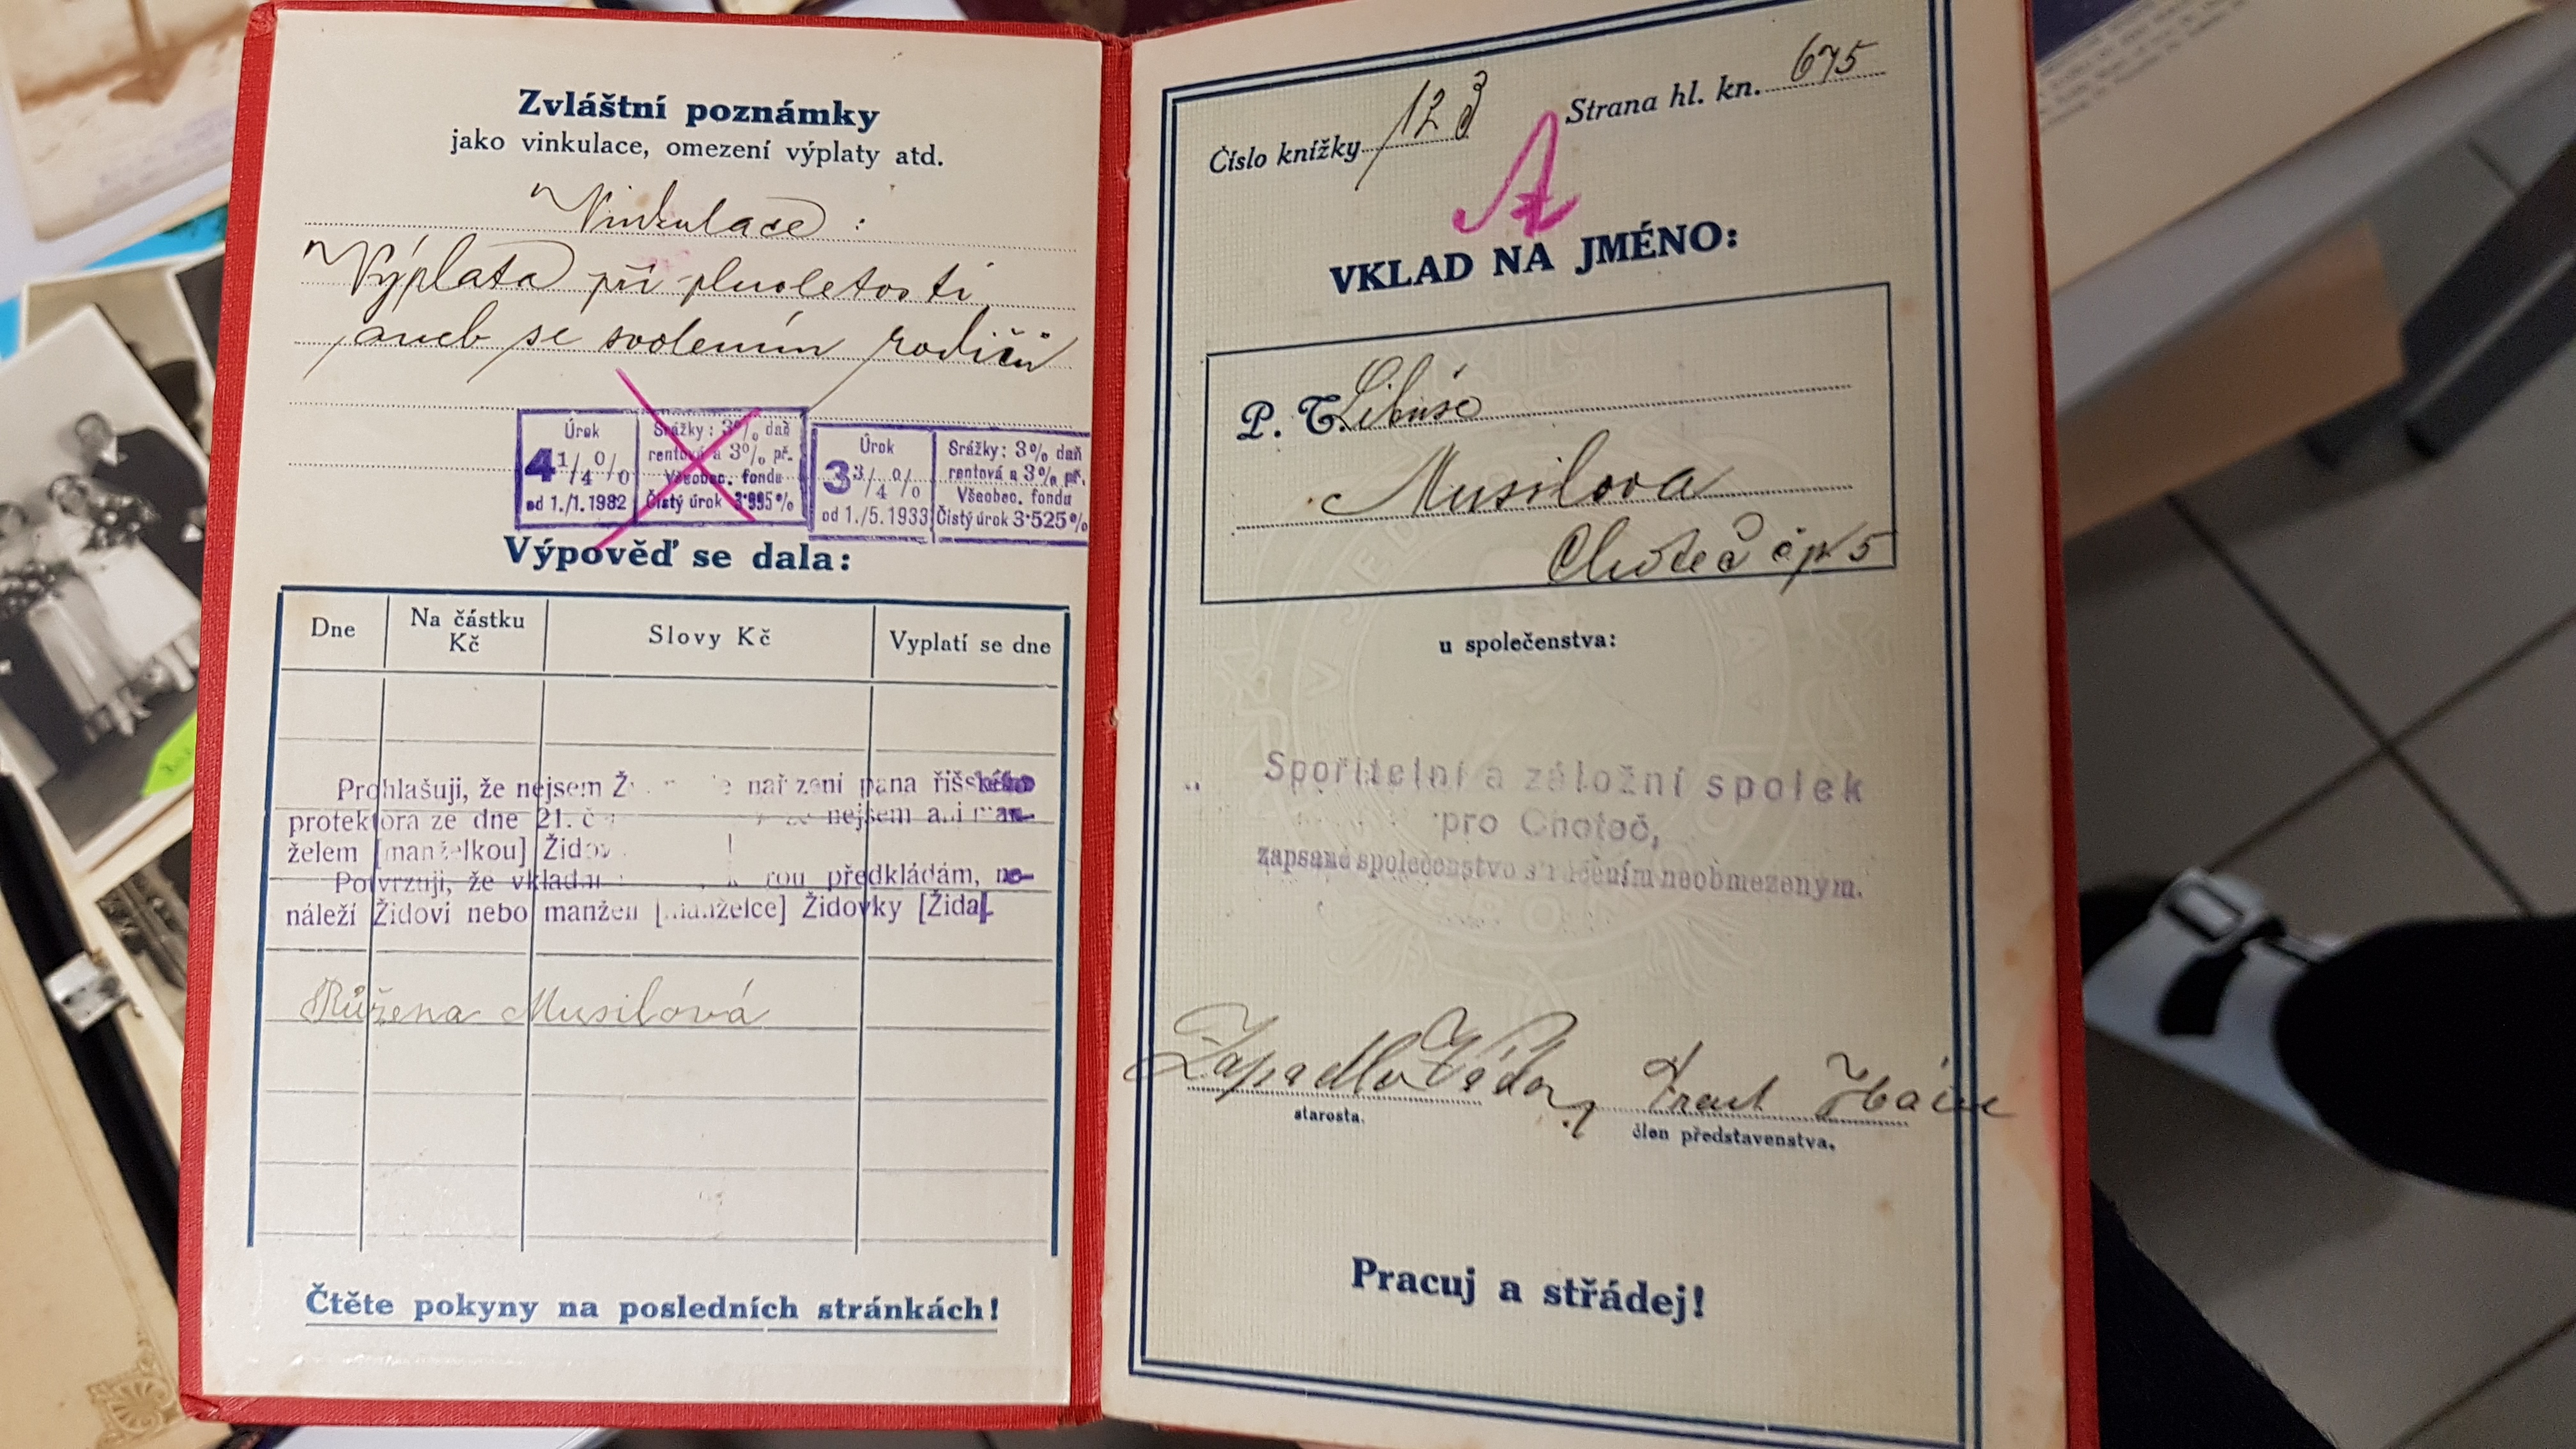 Zvláštní poznámky
jako vinkulace, omezení výplaty atd.
Vinkulace :
Výplata při plnoletosti
aneb se svolením rodičů
Úrok
4 1/4 %
od 1./1. 1932
Srážky: 3% daň
rentová a 3% př.
Všeobec. fondu
Čistý úrok 3·995%
Úrok
3 3/4 %
od 1./5. 1933
Srážky: 3% daň
rentová a 3% př.
Všeobec. fondu
Čistý úrok 3·525%
Výpověď se dala:
Dne
Na částku
Kč
Slovy Kč
Vyplatí se dne
Prohlašuji, že nejsem nařízení pana říšského
protektora ze dne 21. nejsem ani man-
želem [manželkou]
Potvrzuji, že předkládám, ne-
náleží Židovi nebo manželu [manželce] Židovky [Žida].
Růžena Musilová
Čtěte pokyny na posledních stránkách!
Číslo knížky 123
Strana hl. kn. 675
A
VKLAD NA JMÉNO:
P. T. Libuše
Musilova
Choteč čp 5
u společenstva:
Spořitelní a záložní spolek
pro Choteč,
zapsané společenstvo s ručením neobmezeným.
starosta.
člen představenstva.
Pracuj a střádej!